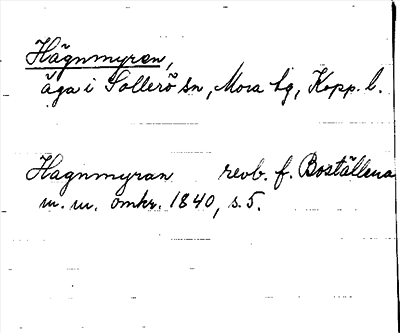 Hägnmyren,
äga i Sollerö sn, Mora tg, Kopp. l.
Hagnmyran revb. f. Boställena
m. m. omkr. 1840, s. 5.